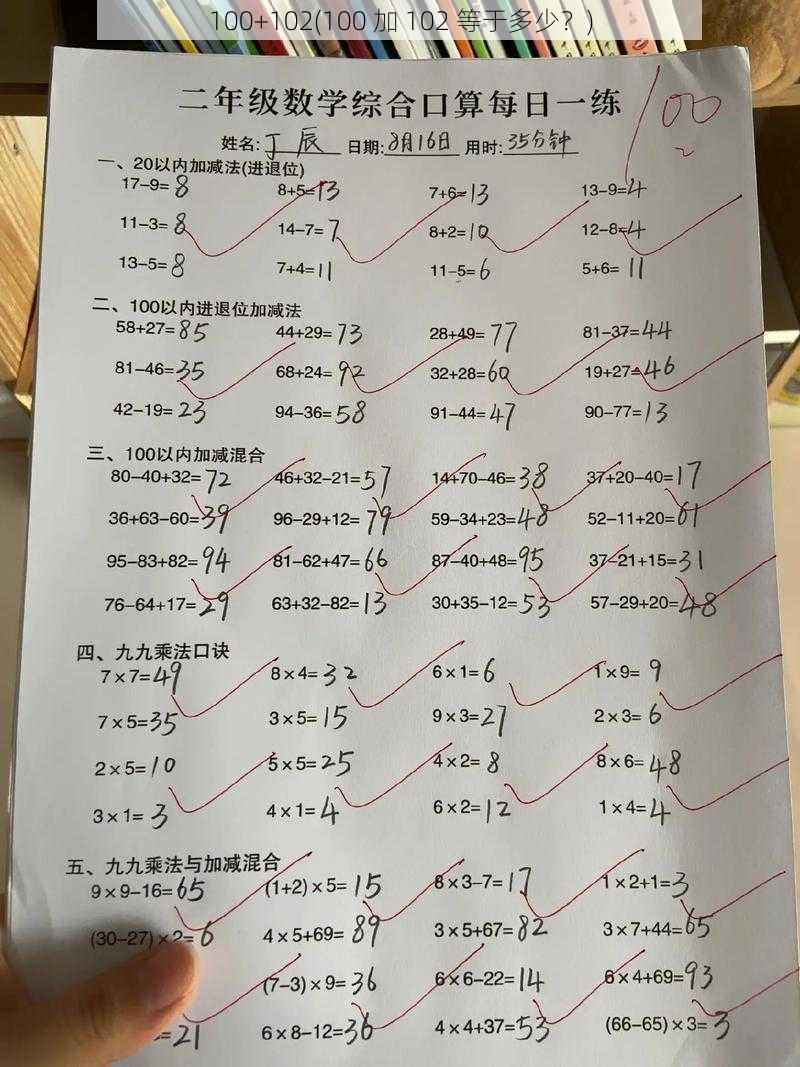 100+102(100 加 102 等于多少？)
二年级数学综合口算每日一练
100
姓名:丁辰 日期:8月16日 用时:35分钟
一、20以内加减法(进退位)
17−9=8 8+5=13 7+6=13 13−9=4
11−3=8 14−7=7 8+2=10 12−8=4
13−5=8 7+4=11 11−5=6 5+6=11
二、100以内进退位加减法
58+27=85 44+29=73 28+49=77 81−37=44
81−46=35 68+24=92 32+28=60 19+27=46
42−19=23 94−36=58 91−44=47 90−77=13
三、100以内加减混合
80−40+32=72 46+32−21=57 14+70−46=38 37+20−40=17
36+63−60=39 96−29+12=79 59−34+23=48 52−11+20=61
95−83+82=94 81−62+47=66 87−40+48=95 37−21+15=31
76−64+17=29 63+32−82=13 30+35−12=53 57−29+20=48
四、九九乘法口诀
7×7=49 8×4=32 6×1=6 1×9=9
7×5=35 3×5=15 9×3=27 2×3=6
2×5=10 5×5=25 4×2=8 8×6=48
3×1=3 4×1=4 6×2=12 1×4=4
五、九九乘法与加减混合
9×9−16=65 (1+2)×5=15 8×3−7=17 1×2+1=3
(30−27)×2=6 4×5+69=89 3×5+67=82 3×7+44=65
(7−3)×9=36 6×6−22=14 6×4+69=93
=21 6×8−12=36 4×4+37=53 (66−65)×3=3